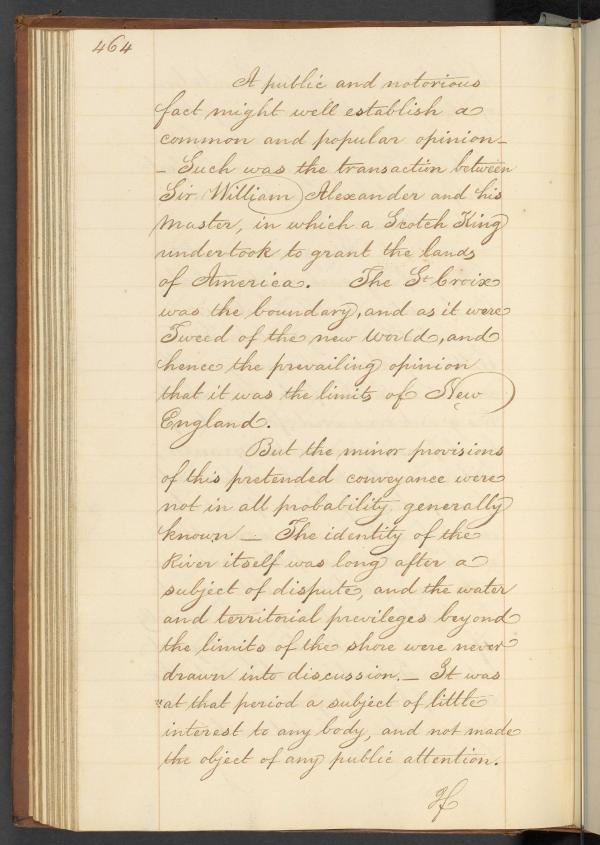 464
A public and notorious
fact might well establish a
common and popular opinion_
_ Such was the transaction between
Sir William Alexander and his
Master, in which a Scotch King
undertook to grant the lands
of America. The St Croix
was the boundary, and as it were
Tweed of the new World, and
hence the prevailing opinion
that it was the limits of New
England.
But the minor provisions
of this pretended conveyance were
not in all probability generally
known _ The identity of the
River itself was long after a
subject of dispute, and the water
and territorial previleges beyond
the limits of the shore were never
drawn into discussion._ It was
"at that period a subject of little
interest to any body, and not made
the object of any public attention.
If